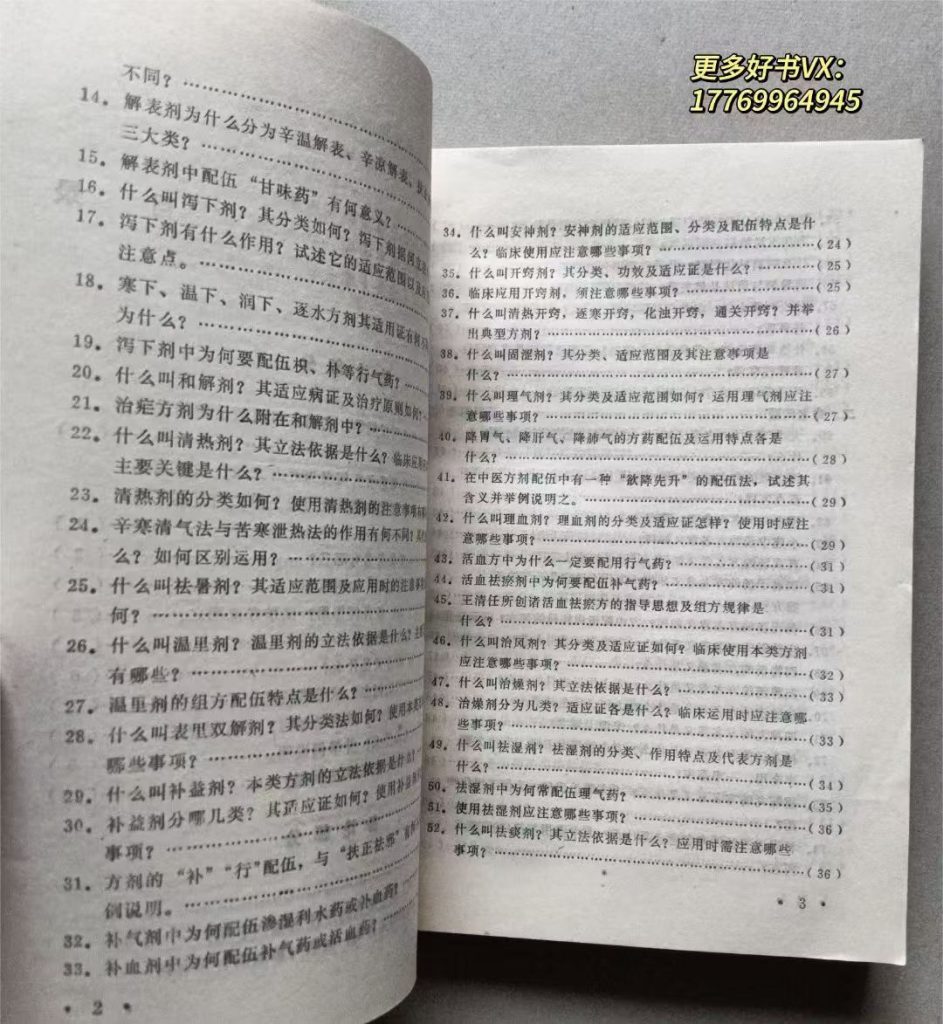 更多好书VX:
17769964945
不同?
14。解表剂为什么分为辛温解表、辛凉解表、扶正
三大类?
15。解表剂中配伍“甘味药”有何意义?
16。什么叫泻下剂?其分类如何?泻下剂
17。泻下剂有什么作用?试述它的适应范围以及
注意点。
18。寒下、温下、润下、逐水方剂其适用证有何不
为什么?
19。泻下剂中为何要配伍枳、朴等行气药?
20。什么叫和解剂?其适应病证及治疗原则如何?
21。治疟方剂为什么附在和解剂中?
22。什么叫清热剂?其立法依据是什么?临床应用
主要关键是什么?
23。清热剂的分类如何?使用清热剂的注意事项
24。辛寒清气法与苦寒泄热法的作用有何不同?
么?如何区别运用?
25。什么叫祛暑剂?其适应范围及应用时的注意事
何?
26。什么叫温里剂?温里剂的立法依据是什么?
有哪些?
27。温里剂的组方配伍特点是什么?
28。什么叫表里双解剂?其分类法如何?使用本
哪些事项?
29。什么叫补益剂?本类方剂的立法依据是什么?
30。补益剂分哪几类?其适应证如何?使用补益
事项?
31。方剂的“补”“行”配伍,与“扶正祛邪”
例说明。
32。补气剂中为何配伍渗湿利水药或补血药?
33。补血剂中为何配伍补气药或活血药?
• 2 •
34。什么叫安神剂?安神剂的适应范围、分类及配伍特点是什
么?临床使用应注意哪些事项?(24)
35。什么叫开窍剂?其分类、功效及适应证是什么?(25)
36。临床应用开窍剂,须注意哪些事项?(25)
37。什么叫清热开窍,逐寒开窍,化浊开窍,通关开窍?并举
出典型方剂?(26)
38。什么叫固涩剂?其分类、适应范围及其注意事项是
什么?(27)
39。什么叫理气剂?其分类及适应范围如何?运用理气剂应注
意哪些事项?(27)
40。降胃气、降肝气、降肺气的方药配伍及运用特点各是
什么?(28)
41。在中医方剂配伍中有一种“欲降先升”的配伍法,试述其
含义并举例说明之。(29)
42。什么叫理血剂?理血剂的分类及适应证怎样?使用时应注
意哪些事项?(29)
43。活血方中为什么一定要配用行气药?(31)
44。活血祛瘀剂中为何要配伍补气药?(31)
45。王清任所创诸活血祛瘀方的指导思想及组方规律是
什么?(31)
46。什么叫治风剂?其分类及适应证如何?临床使用本类方剂
应注意哪些事项?(32)
47。什么叫治燥剂?其立法依据是什么?(33)
48。治燥剂分为几类?适应证各是什么?临床运用时应注意哪
些事项?(33)
49。什么叫祛湿剂?祛湿剂的分类、作用特点及代表方剂是
什么?(34)
50。祛湿剂中为何常配伍理气药?(35)
51。使用祛湿剂应注意哪些事项?(36)
52。什么叫祛痰剂?其立法依据是什么?应用时需注意哪些
事项?(36)
• 3 •